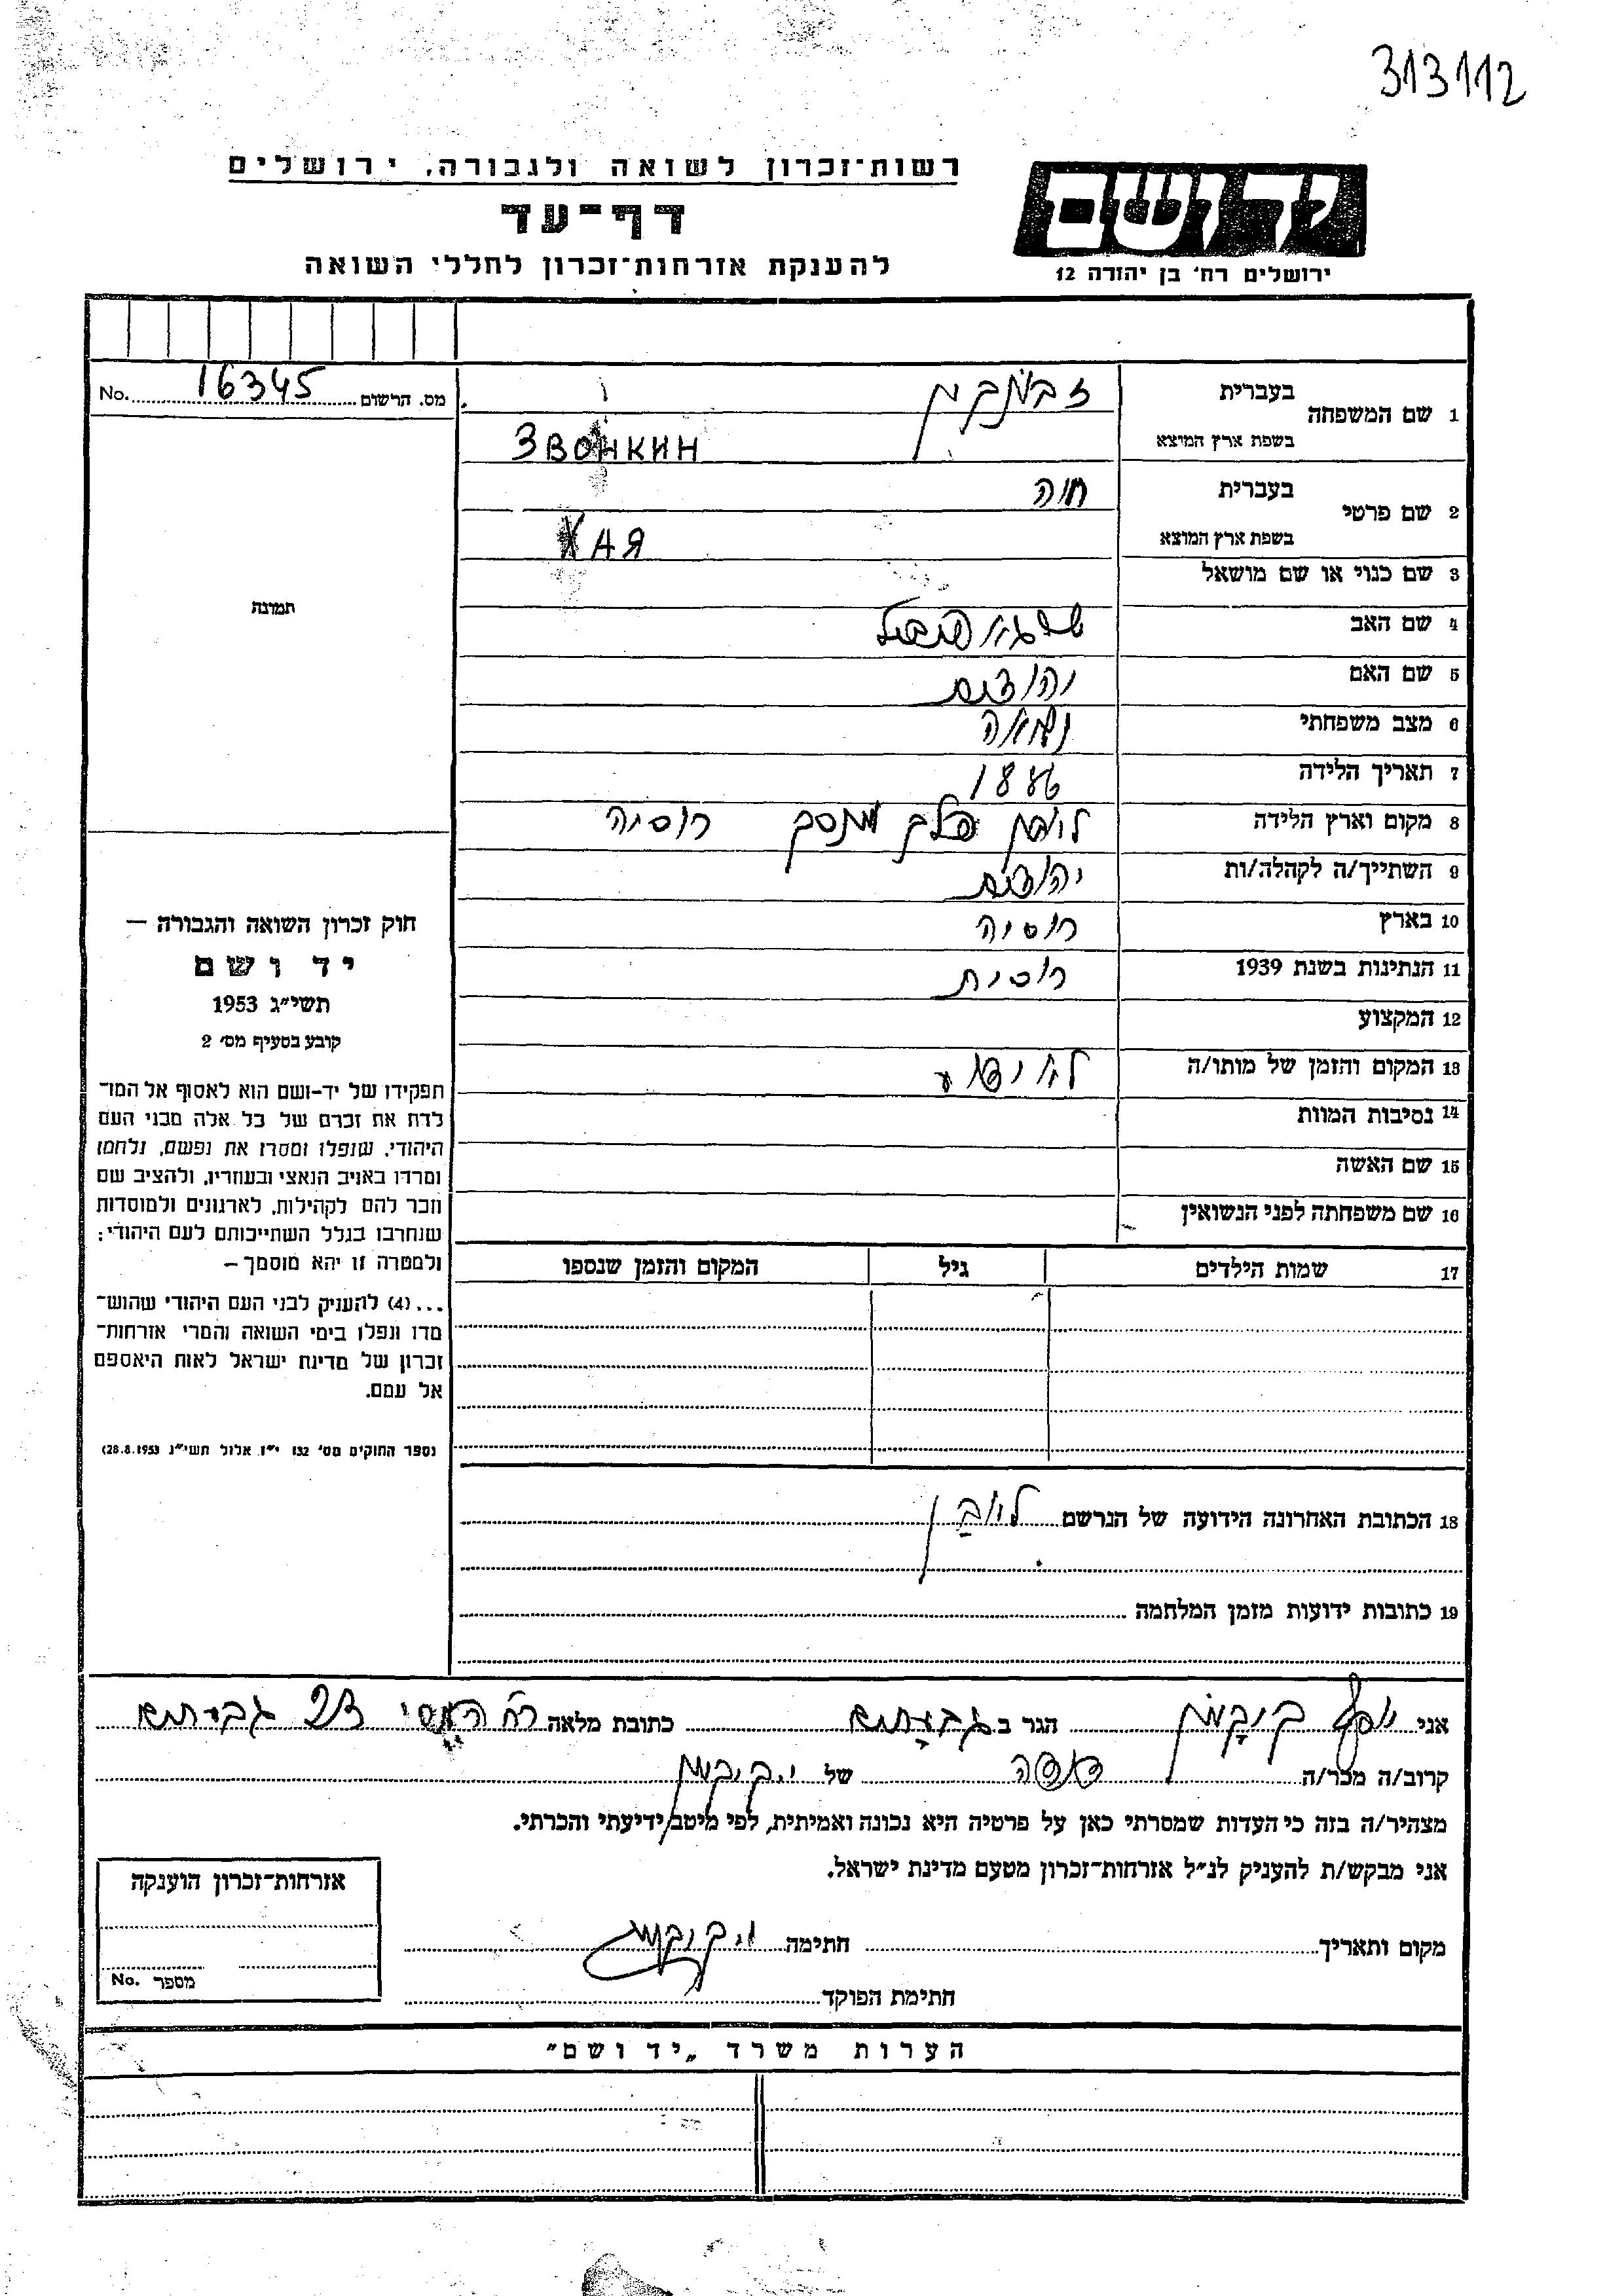 313112
רשות-זכרון לשואה ולגבורה, ירושלים
ידושם
דף-עד
ירושלים רח' בן יהודה 12
להענקת אזרחות-זכרון לחללי השואה
מס. הרשום 16345 No.
1 שם המשפחה
בעברית
בשפת ארץ המוצא ЗВОНКИН
2 שם פרטי
בעברית חיה
בשפת ארץ המוצא ХАЯ
3 שם כנוי או שם מושאל
תמונה
4 שם האב
5 שם האם
6 מצב משפחתי נשואה
7 תאריך הלידה 1886
8 מקום וארץ הלידה לובן פלך מינסק רוסיה
9 השתייך/ה לקהלה/ות
10 בארץ רוסיה
11 הנתינות בשנת 1939 רוסית
12 המקצוע
13 המקום והזמן של מותו/ה לא ידוע
14 נסיבות המוות
15 שם האשה
16 שם משפחתה לפני הנשואין
17 שמות הילדים גיל המקום והזמן שנספו
חוק זכרון השואה והגבורה —
יד ושם
תשי״ג 1953
קובע בסעיף מס' 2
תפקידו של יד-ושם הוא לאסוף אל המו־
לדת את זכרם של כל אלה מבני העם
היהודי, שנפלו ומסרו את נפשם, נלחמו
ומרדו באויב הנאצי ובעוזריו, ולהציב שם
וזכר להם לקהילות, לארגונים ולמוסדות
שנחרבו בגלל השתייכותם לעם היהודי;
ולמטרה זו יהא מוסמך –
...(4) להעניק לבני העם היהודי שהוש־
מדו ונפלו בימי השואה והמרי אזרחות־
זכרון של מדינת ישראל לאות היאספם
אל עמם.
(ספר החוקים מס' 132 י״ז אלול תשי״ג 28.8.1953)
18 הכתובת האחרונה הידועה של הנרשם לובן
19 כתובות ידועות מזמן המלחמה
אני יוסף הגר ב גבעתיים כתובת מלאה רח' 23 גבעתיים
קרוב/ה מכר/ה של
מצהיר/ה בזה כי העדות שמסרתי כאן על פרטיה היא נכונה ואמיתית, לפי מיטב ידיעתי והכרתי.
אני מבקש/ת להעניק לנ״ל אזרחות-זכרון מטעם מדינת ישראל.
מקום ותאריך חתימה
חתימת הפוקד
אזרחות-זכרון הוענקה
מספר No.
הערות משרד „יד ושם״